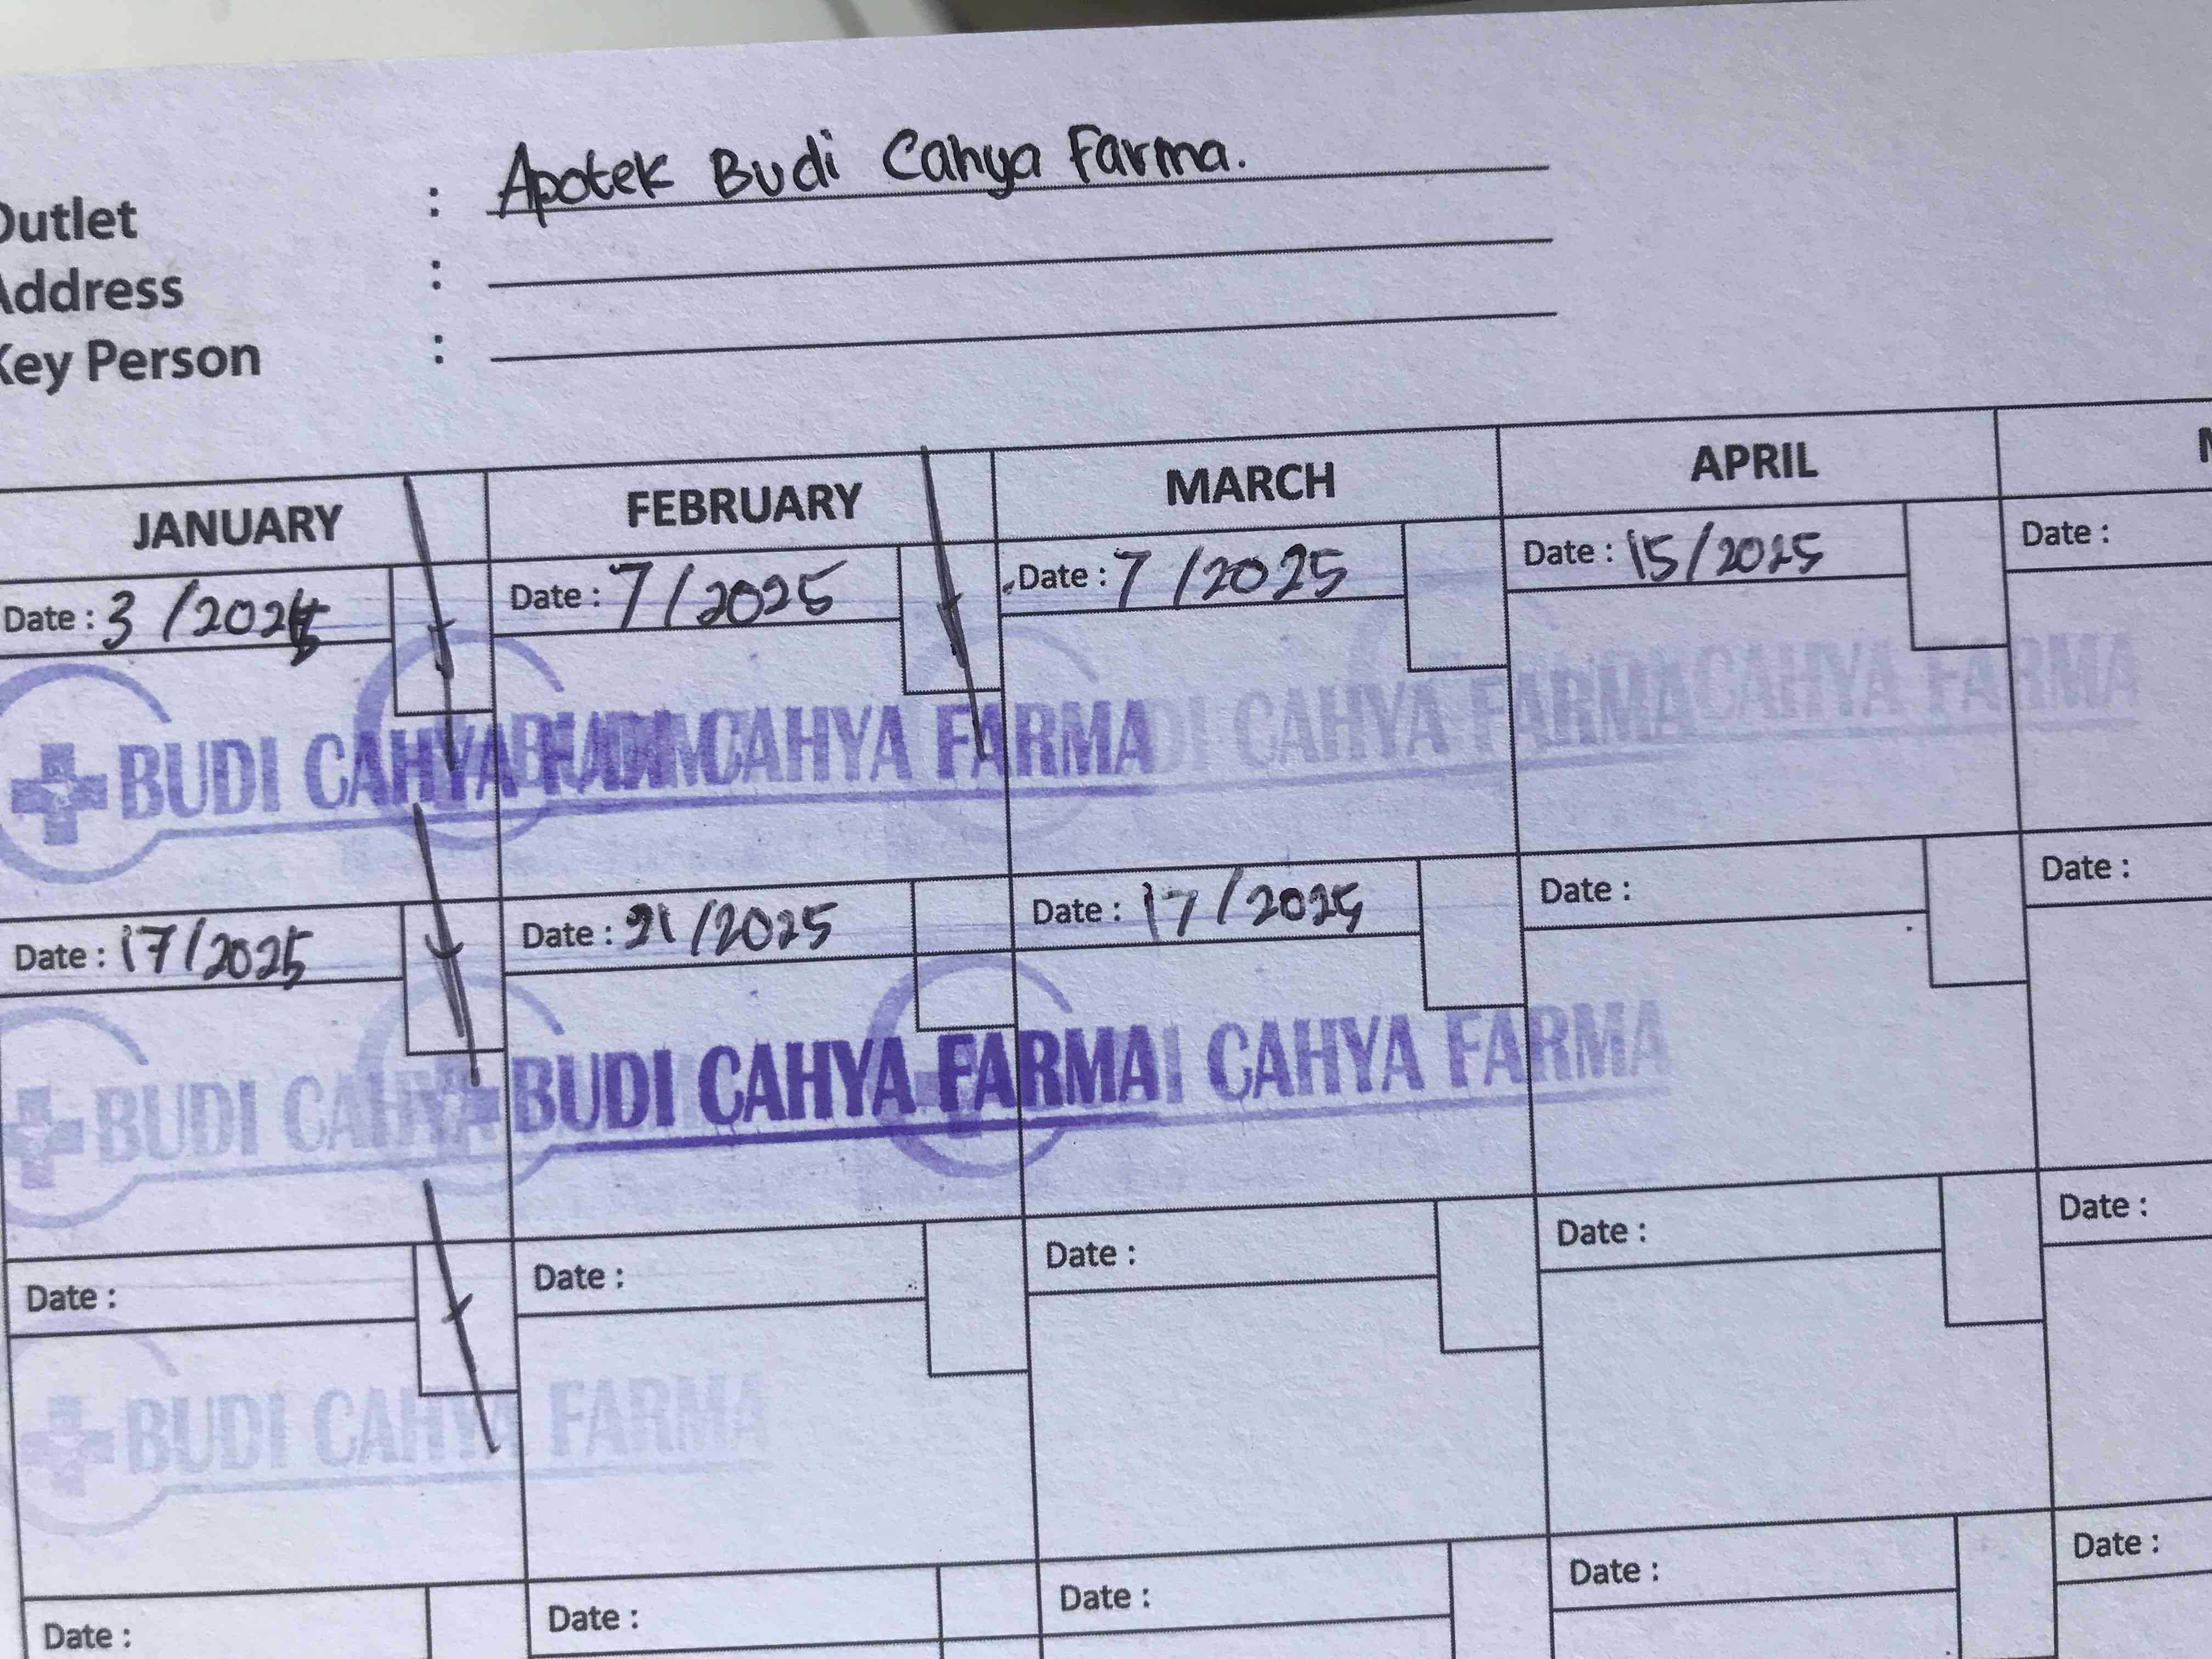 Outlet : Apotek Budi Cahya Farma.
Address :
Key Person :
JANUARY FEBRUARY MARCH APRIL
Date : 3 /2025 Date : 7/2025 Date : 7 /2025 Date : 15/2025 Date :
BUDI CAHYA BUDI CAHYA FARMA DI CAHYA FARMA CAHYA FARMA
Date : 17/2025 Date : 21/2025 Date : 17/2025 Date : Date :
BUDI CAHYA BUDI CAHYA FARMA CAHYA FARMA
Date : Date : Date : Date : Date :
BUDI CAHYA FARMA
Date : Date : Date : Date : Date :